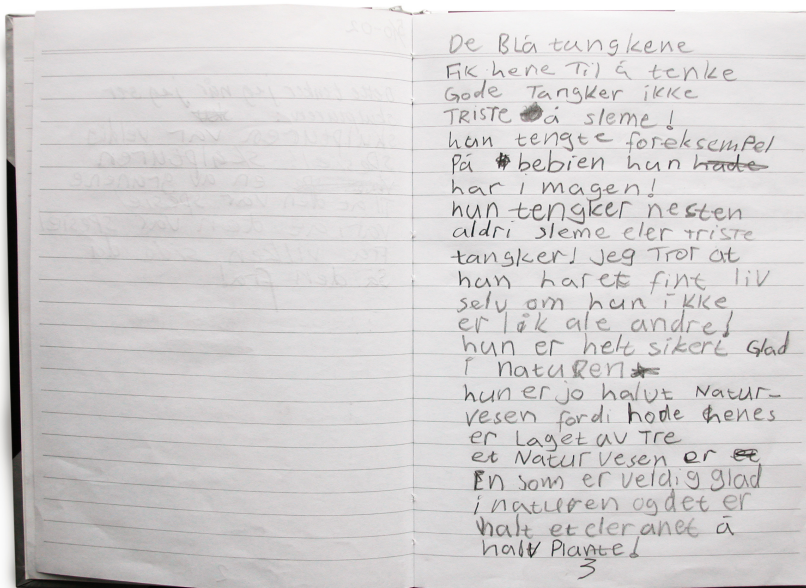 De Blå tungkene
Fik hene Til å tenke
Gode Tangker ikke
TRISTE å sleme!
hun tengte foreksempel
På bebien hun hade
har i magen!
hun tengker nesten
aldri sleme eler triste
tangker! jeg Tror at
hun haret fint liv
selv om hun ikke
er lik ale andre!
hun er helt sikert Glad
i naturen
hun er jo halvt Natur-
vesen fordi hode henes
er Laget av Tre
et Natur vesen er et
En som er veldig glad
i naturen og det er
halt et eler anet å
halv Plante!
3